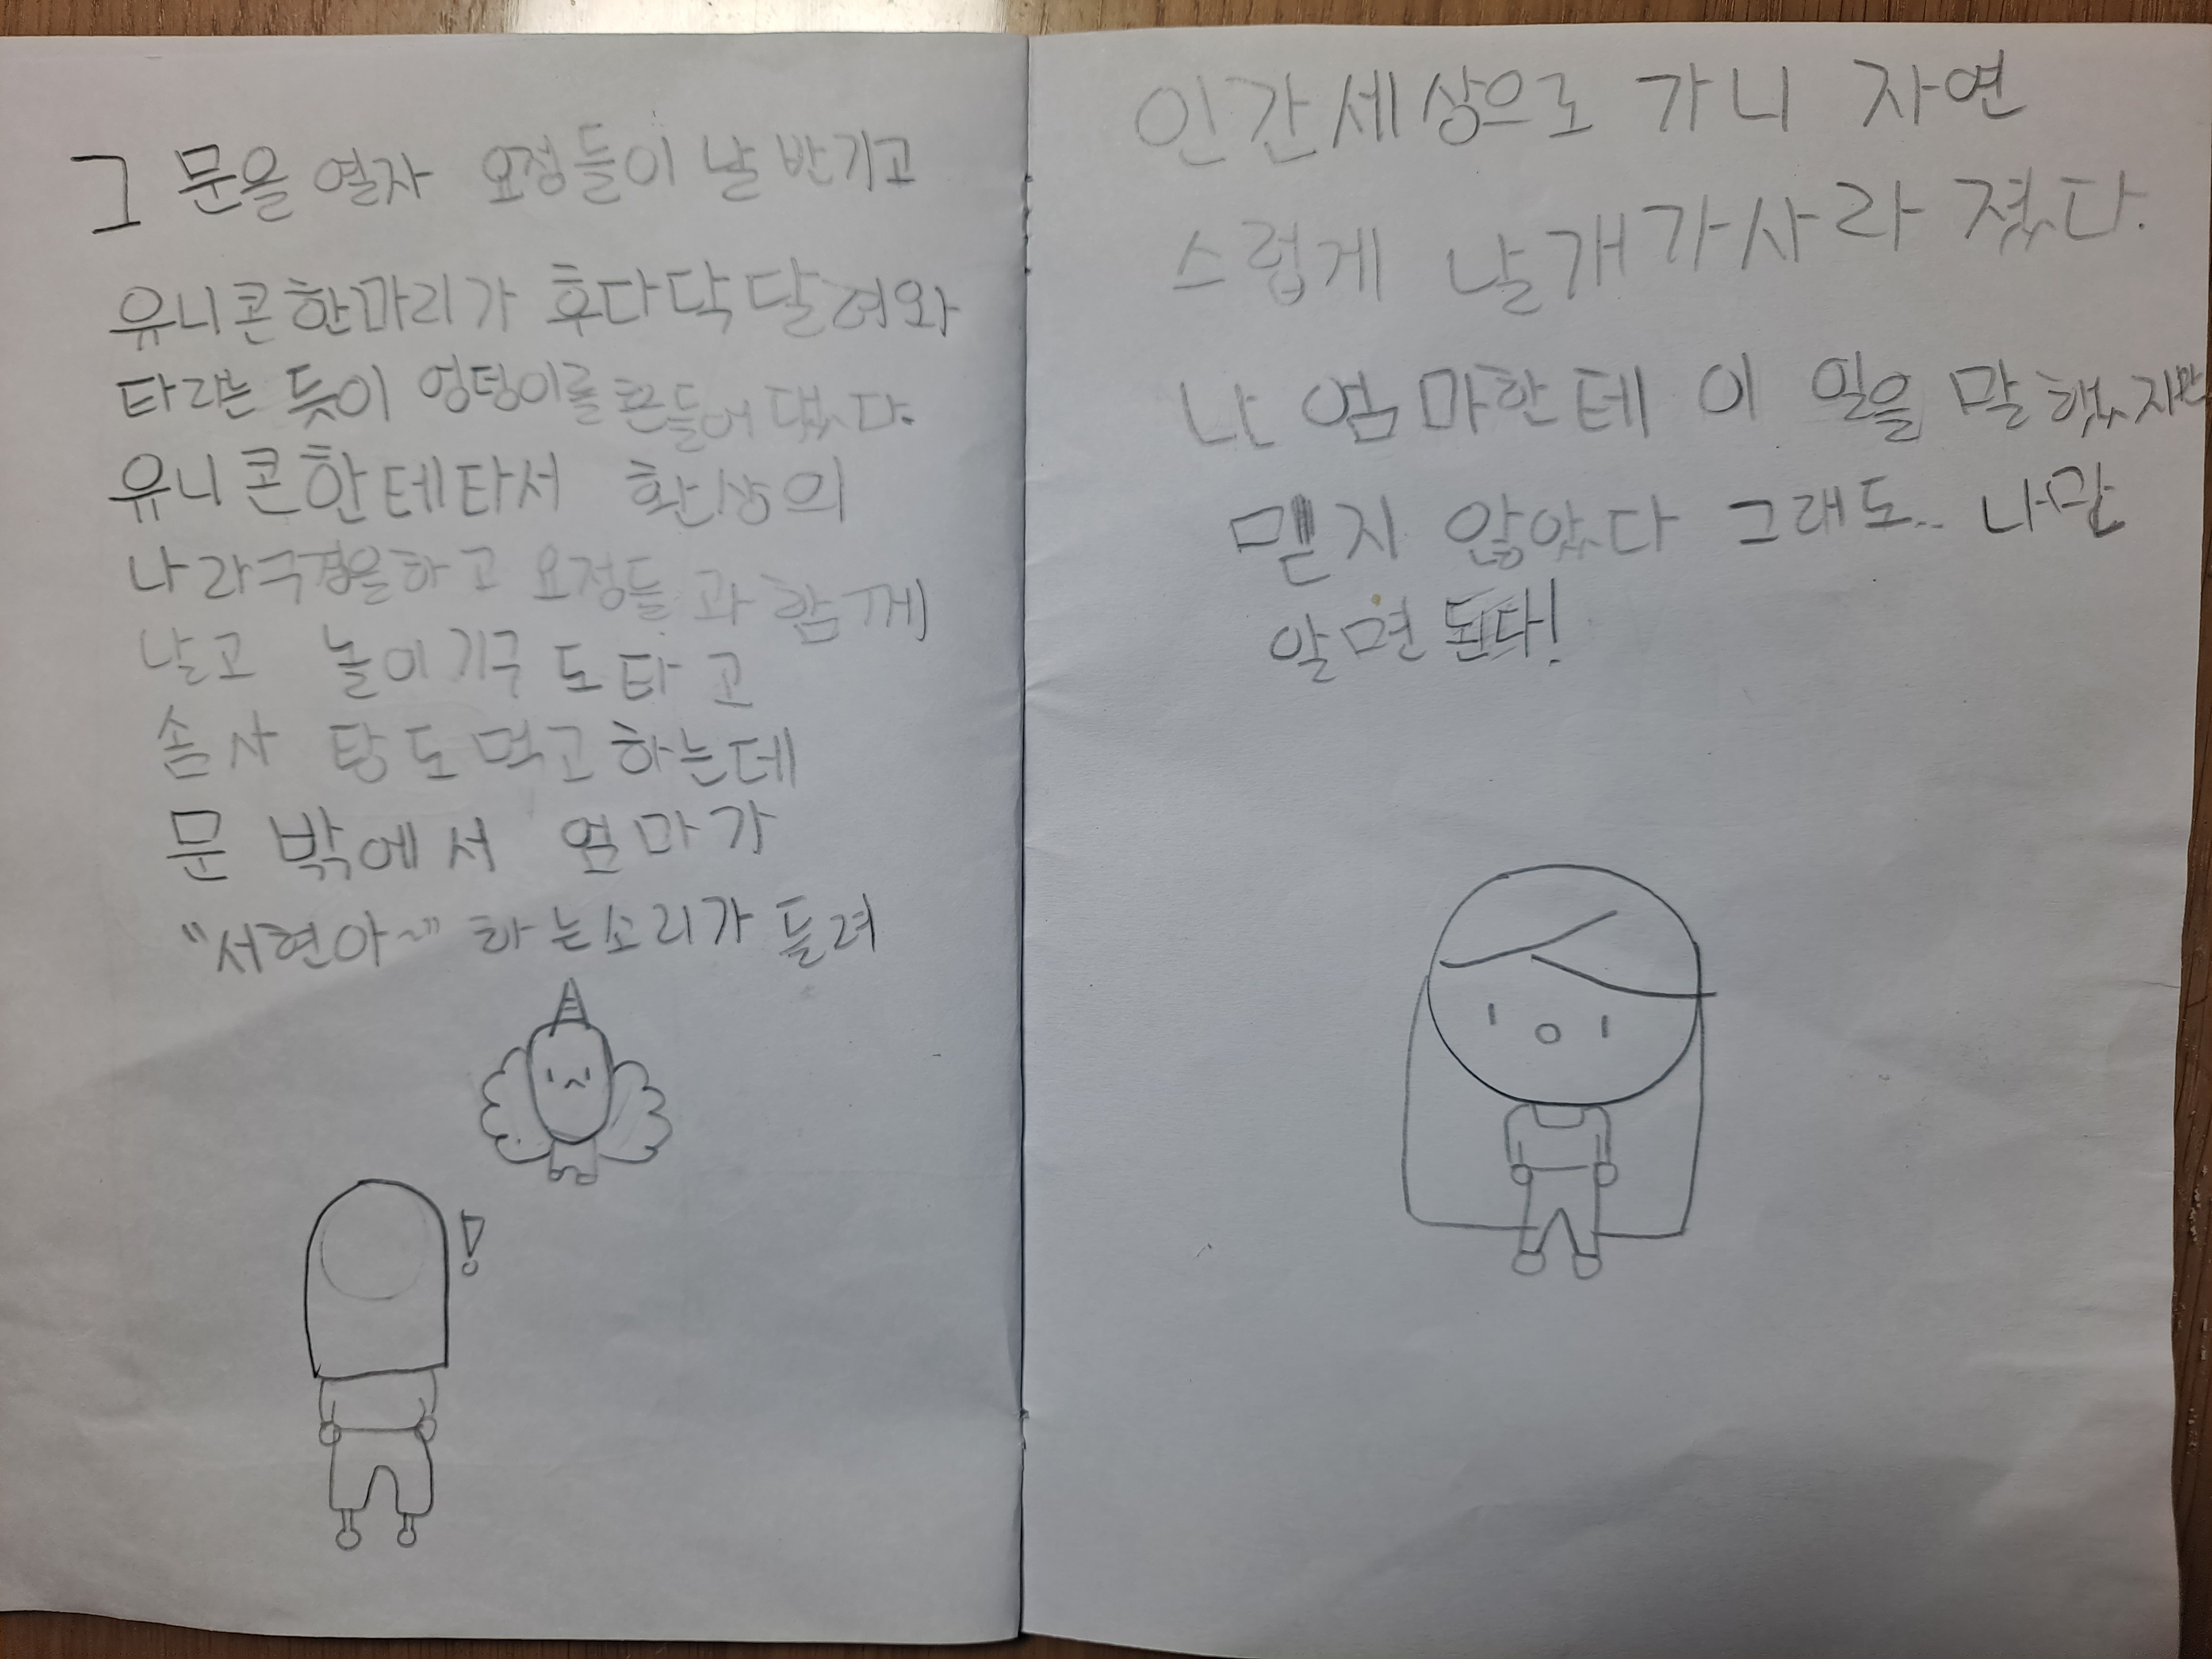 그 문을 열자 요정들이 날 반기고
유니콘한마리가 후다닥달려와
타라는 듯이 엉덩이를흔들어댔다.
유니콘한테타서 환상의
나라구경을하고 요정들과함께
날고 놀이기구도타고
솜사탕도먹고하는데
문 밖에서 엄마가
"서현아~" 하는소리가 들려
인간세상으로 가니 자연
스럽게 날개가사라졌다.
난 엄마한테 이 일을 말했지만
믿지 않았다 그래도.. 나만
알면 된다!
!